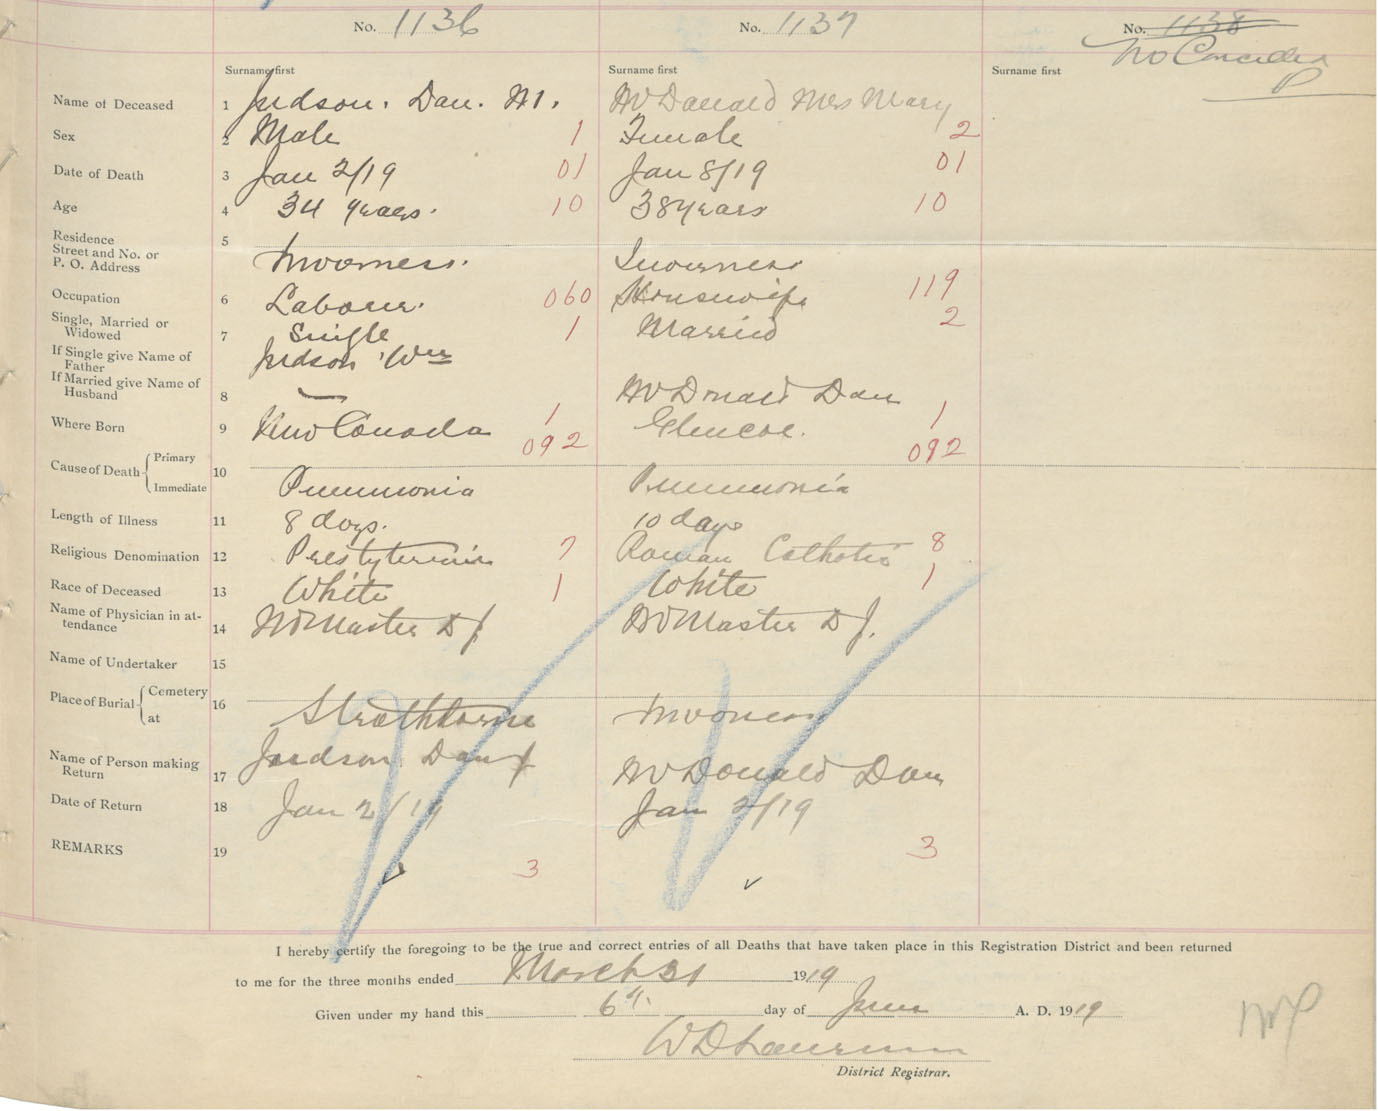 No. 1136
No. 1137
No. 1138
No Cancelled
Surname first
Surname first
Surname first
Name of Deceased 1 Judson. Dan. M. McDonald Mrs Mary
Sex 2 Male 1 Female 2
Date of Death 3 Jan 2/19 01 Jan 8/19 01
Age 4 34 years. 10 38 years 10
Residence
Street and No. or
P. O. Address 5 Inverness. Inverness
Occupation 6 Laborer. 060 Housewife 119
Single, Married or
Widowed 7 Single 1 Married 2
If Single give Name of
Father Judson Wm
If Married give Name of
Husband 8 — McDonald Dan
Where Born 9 New Canada 1 Glencoe. 1
092 092
Cause of Death { Primary 10
Immediate Pneumonia Pneumonia
Length of Illness 11 8 days. 10 days
Religious Denomination 12 Presbyterian 7 Roman Catholic 8
Race of Deceased 13 White 1 White 1
Name of Physician in at-
tendance 14 McMaster D J. McMaster D J.
Name of Undertaker 15
Place of Burial { Cemetery 16
at Strathlorne Inverness
Name of Person making
Return 17 Judson Dan McDonald Dan
Date of Return 18 Jan 2/19 Jan 2/19
REMARKS 19
3 3
I hereby certify the foregoing to be the true and correct entries of all Deaths that have taken place in this Registration District and been returned
to me for the three months ended March 31 1919
Given under my hand this 6th. day of June A. D. 1919
W D
District Registrar.